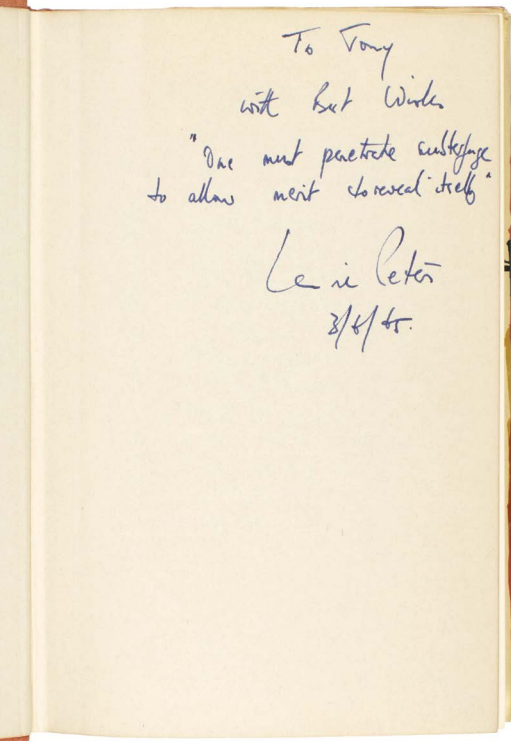 To Tony
with Best Wishes
"One must penetrate subterfuge
to allow merit to reveal itself"
Lenrie Peters
3/6/65.